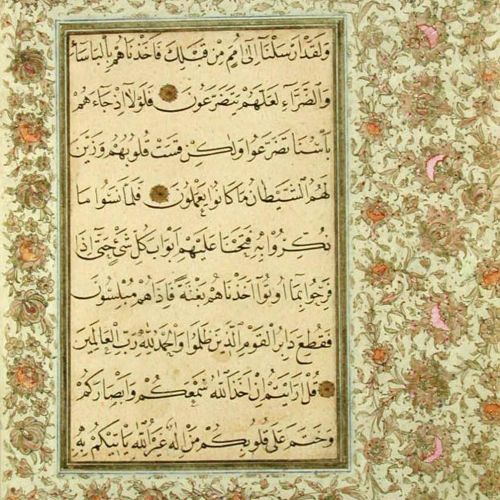 وَلَقَدْ اَرْسَلْنَآ اِلٰى اُمَمٍ مِنْ قَبْلِكَ فَاَخَذْنَاهُمْ بِالْبَاْسَآءِ
وَالضَّرَّآءِ لَعَلَّهُمْ يَتَضَرَّعُونَ فَلَوْلَآ اِذْ جَآءَهُمْ
بَاْسُنَا تَضَرَّعُوا وَلٰكِنْ قَسَتْ قُلُوبُهُمْ وَزَيَّنَ
لَهُمُ الشَّيْطَانُ مَا كَانُوا يَعْمَلُونَ فَلَمَّا نَسُوا مَا
ذُكِّرُوا بِهِ فَتَحْنَا عَلَيْهِمْ اَبْوَابَ كُلِّ شَيْءٍ حَتّٰى اِذَا
فَرِحُوا بِمَآ اُوتُوٓا اَخَذْنَاهُمْ بَغْتَةً فَاِذَا هُمْ مُبْلِسُونَ
فَقُطِعَ دَابِرُ الْقَوْمِ الَّذِينَ ظَلَمُوا وَالْحَمْدُ لِلّٰهِ رَبِّ الْعَالَمِينَ
قُلْ اَرَاَيْتُمْ اِنْ اَخَذَ اللّٰهُ سَمْعَكُمْ وَاَبْصَارَكُمْ
وَخَتَمَ عَلٰى قُلُوبِكُمْ مَنْ اِلٰهٌ غَيْرُ اللّٰهِ يَاْتِيكُمْ بِهِ